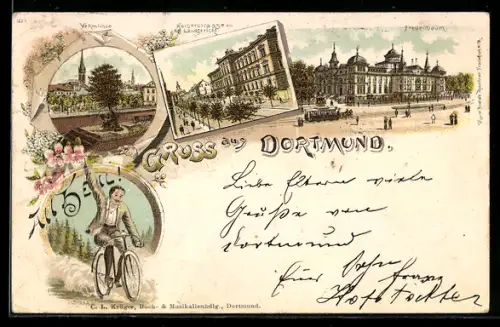 Vehmlinde
Kaiserstrasse m.
Landgericht
Fredenbaum
Gruss aus Dortmund.
All Heil!
Liebe Eltern viele
Grüße von
Dortmund
Euer Sohn Franz
C. L. Krüger, Buch- & Musikalienhdlg., Dortmund.